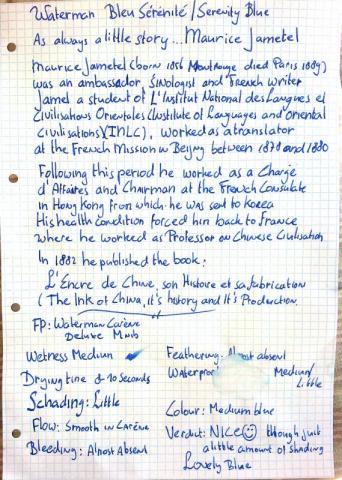 Waterman Bleu Sérénité / Serenity Blue
As always a little story... Maurice Jametel
Maurice Jametel (born 1856 Montrouge died Paris 1889)
was an ambassador, Sinologist and French writer
Jamel a student of L'Institut National des Langues et
Civilisations Orientales (Institute of Languages and oriental
Civilisations) (INLC), worked as a translator
at the French Mission in Beijing between 1878 and 1880
Following this period he worked as a Chargé
d'Affaires and Chairman at the French Consulate
in Hong Kong from which he was sent to Korea
His health condition forced him back to France
where he worked as Professor on Chinese Civilisation
In 1882 he published the book:
L'Encre de Chine, son Histoire et sa fabrication
(The Ink of China, it's history and It's Production.
FP: Waterman Carène
Deluxe M nib
Wetness Medium
Feathering: Almost absent
Drying time ± 10 seconds
Waterproof Medium/
Little
Schading: Little
Colour: Medium blue
Flow: Smooth in Carène
Verdict: NICE ☺ though just
a little amount of shading
Bleeding: Almost Absent
Lovely Blue